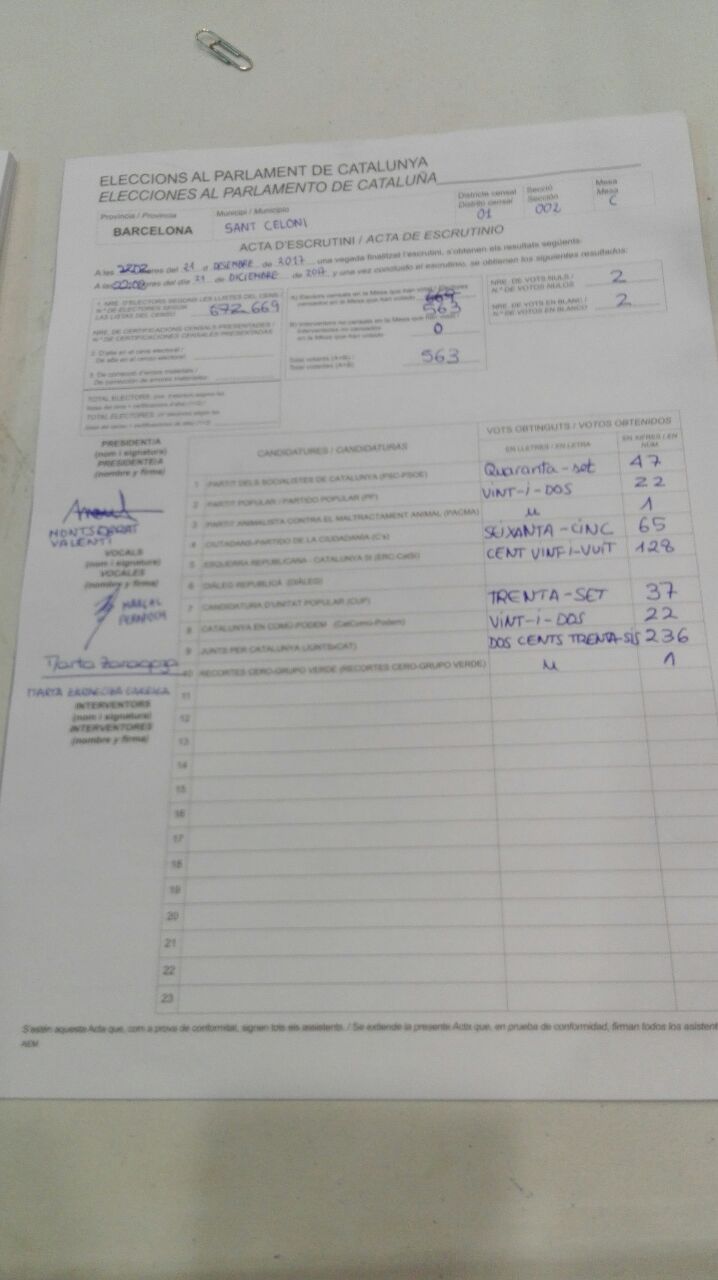 ELECCIONS AL PARLAMENT DE CATALUNYA
ELECCIONES AL PARLAMENTO DE CATALUÑA
Província / Provincia
BARCELONA
Municipi / Municipio
SANT CELONI
Districte censal
Distrito censal
01
Secció
Sección
002
Mesa
Mesa
C
ACTA D'ESCRUTINI / ACTA DE ESCRUTINIO
A les hores del 21 d DESEMBRE de 2017, una vegada finalitzat l'escrutini, s'obtenen els resultats següents:
A las horas del 21 de DICIEMBRE de 2017 y una vez concluido el escrutinio, se obtienen los siguientes resultados:
1. NRE. D'ELECTORS SEGONS LES LLISTES DEL CENS /
N.º DE ELECTORES SEGÚN
LAS LISTAS DEL CENSO
672 669
NRE. DE CERTIFICACIONS CENSALS PRESENTADES /
N.º DE CERTIFICACIONES CENSALES PRESENTADAS
2. D'alta en el cens electoral /
De alta en el censo electoral
3. De correcció d'errors materials /
De corrección de errores materiales
TOTAL ELECTORS
TOTAL ELECTORES
A) Electors censats en la Mesa que han votat / Electores
censados en la Mesa que han votado
669
563
B) Interventors no censats en la Mesa que han votat /
Interventores no censados
en la Mesa que han votado
0
Total votants (A+B) /
Total votantes (A+B)
563
NRE. DE VOTS NULS /
N.º DE VOTOS NULOS
2
NRE. DE VOTS EN BLANC /
N.º DE VOTOS EN BLANCO
2
PRESIDENT/A
(nom i signatura)
PRESIDENTE/A
(nombre y firma)
MONTSERRAT
VALENTI
VOCALS
(nom i signatura)
VOCALES
(nombre y firma)
MARÇAL
Marta Zaragoza
MARTA ZARAGOZA
INTERVENTORS
(nom i signatura)
INTERVENTORES
(nombre y firma)
CANDIDATURES / CANDIDATURAS
VOTS OBTINGUTS / VOTOS OBTENIDOS
EN LLETRES / EN LETRA
EN XIFRES / EN NÚM.
1 PARTIT DELS SOCIALISTES DE CATALUNYA (PSC-PSOE) Quaranta-set 47
2 PARTIT POPULAR / PARTIDO POPULAR (PP) VINT-i-DOS 22
3 PARTIT ANIMALISTA CONTRA EL MALTRACTAMENT ANIMAL (PACMA) u 1
4 CIUTADANS-PARTIDO DE LA CIUDADANÍA (C's) SEIXANTA-CINC 65
5 ESQUERRA REPUBLICANA - CATALUNYA SÍ (ERC-CatSí) CENT VINT-i-VUIT 128
6 DIÀLEG REPUBLICÀ (DIÀLEG)
7 CANDIDATURA D'UNITAT POPULAR (CUP) TRENTA-SET 37
8 CATALUNYA EN COMÚ-PODEM (CatComú-Podem) VINT-i-DOS 22
9 JUNTS PER CATALUNYA (JUNTSxCAT) DOS CENTS TRENTA-SIS 236
10 RECORTES CERO-GRUPO VERDE (RECORTES CERO-GRUPO VERDE) u 1
11
12
13
14
15
16
17
18
19
20
21
22
23
S'estén aquesta Acta que, com a prova de conformitat, signen tots els assistents. / Se extiende la presente Acta que, en prueba de conformidad, firman todos los asistent